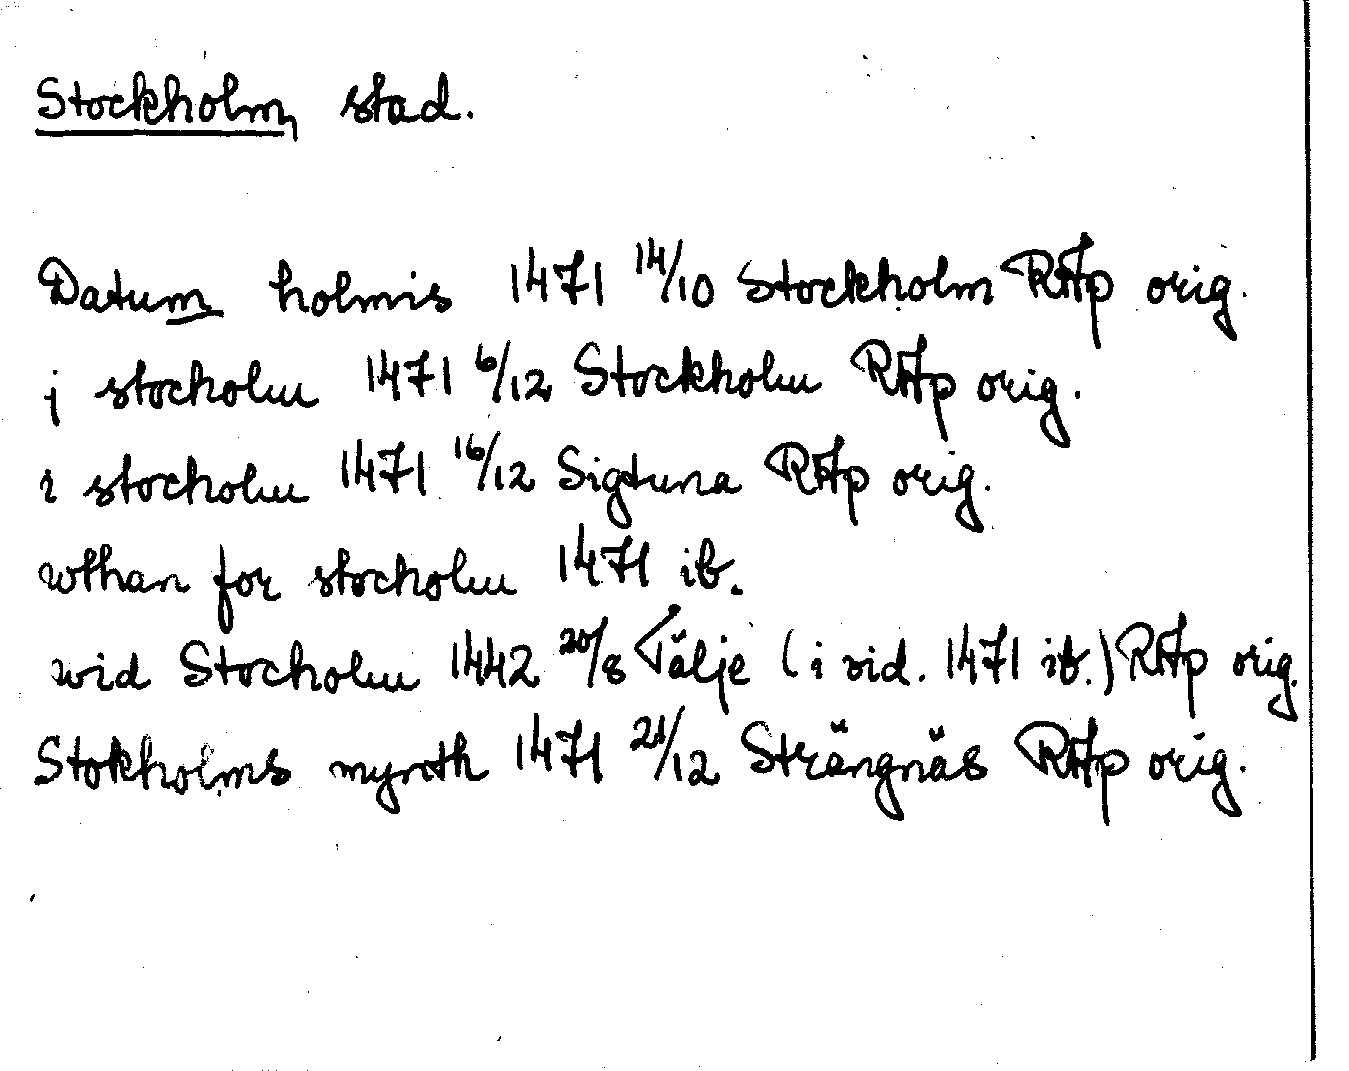 Stockholm, stad.
Datum holmis 1471 14/10 Stockholm RAp orig.
j stocholm 1471 6/12 Stockholm RAp orig.
i stocholm 1471 16/12 Sigtuna RAp orig.
wthan for stocholm 1471 ib.
wid Stocholm 1442 20/8 Tälje (i vid. 1471 ib.) RAp orig.
Stokholms mynth 1471 21/12 Strängnäs RAp orig.